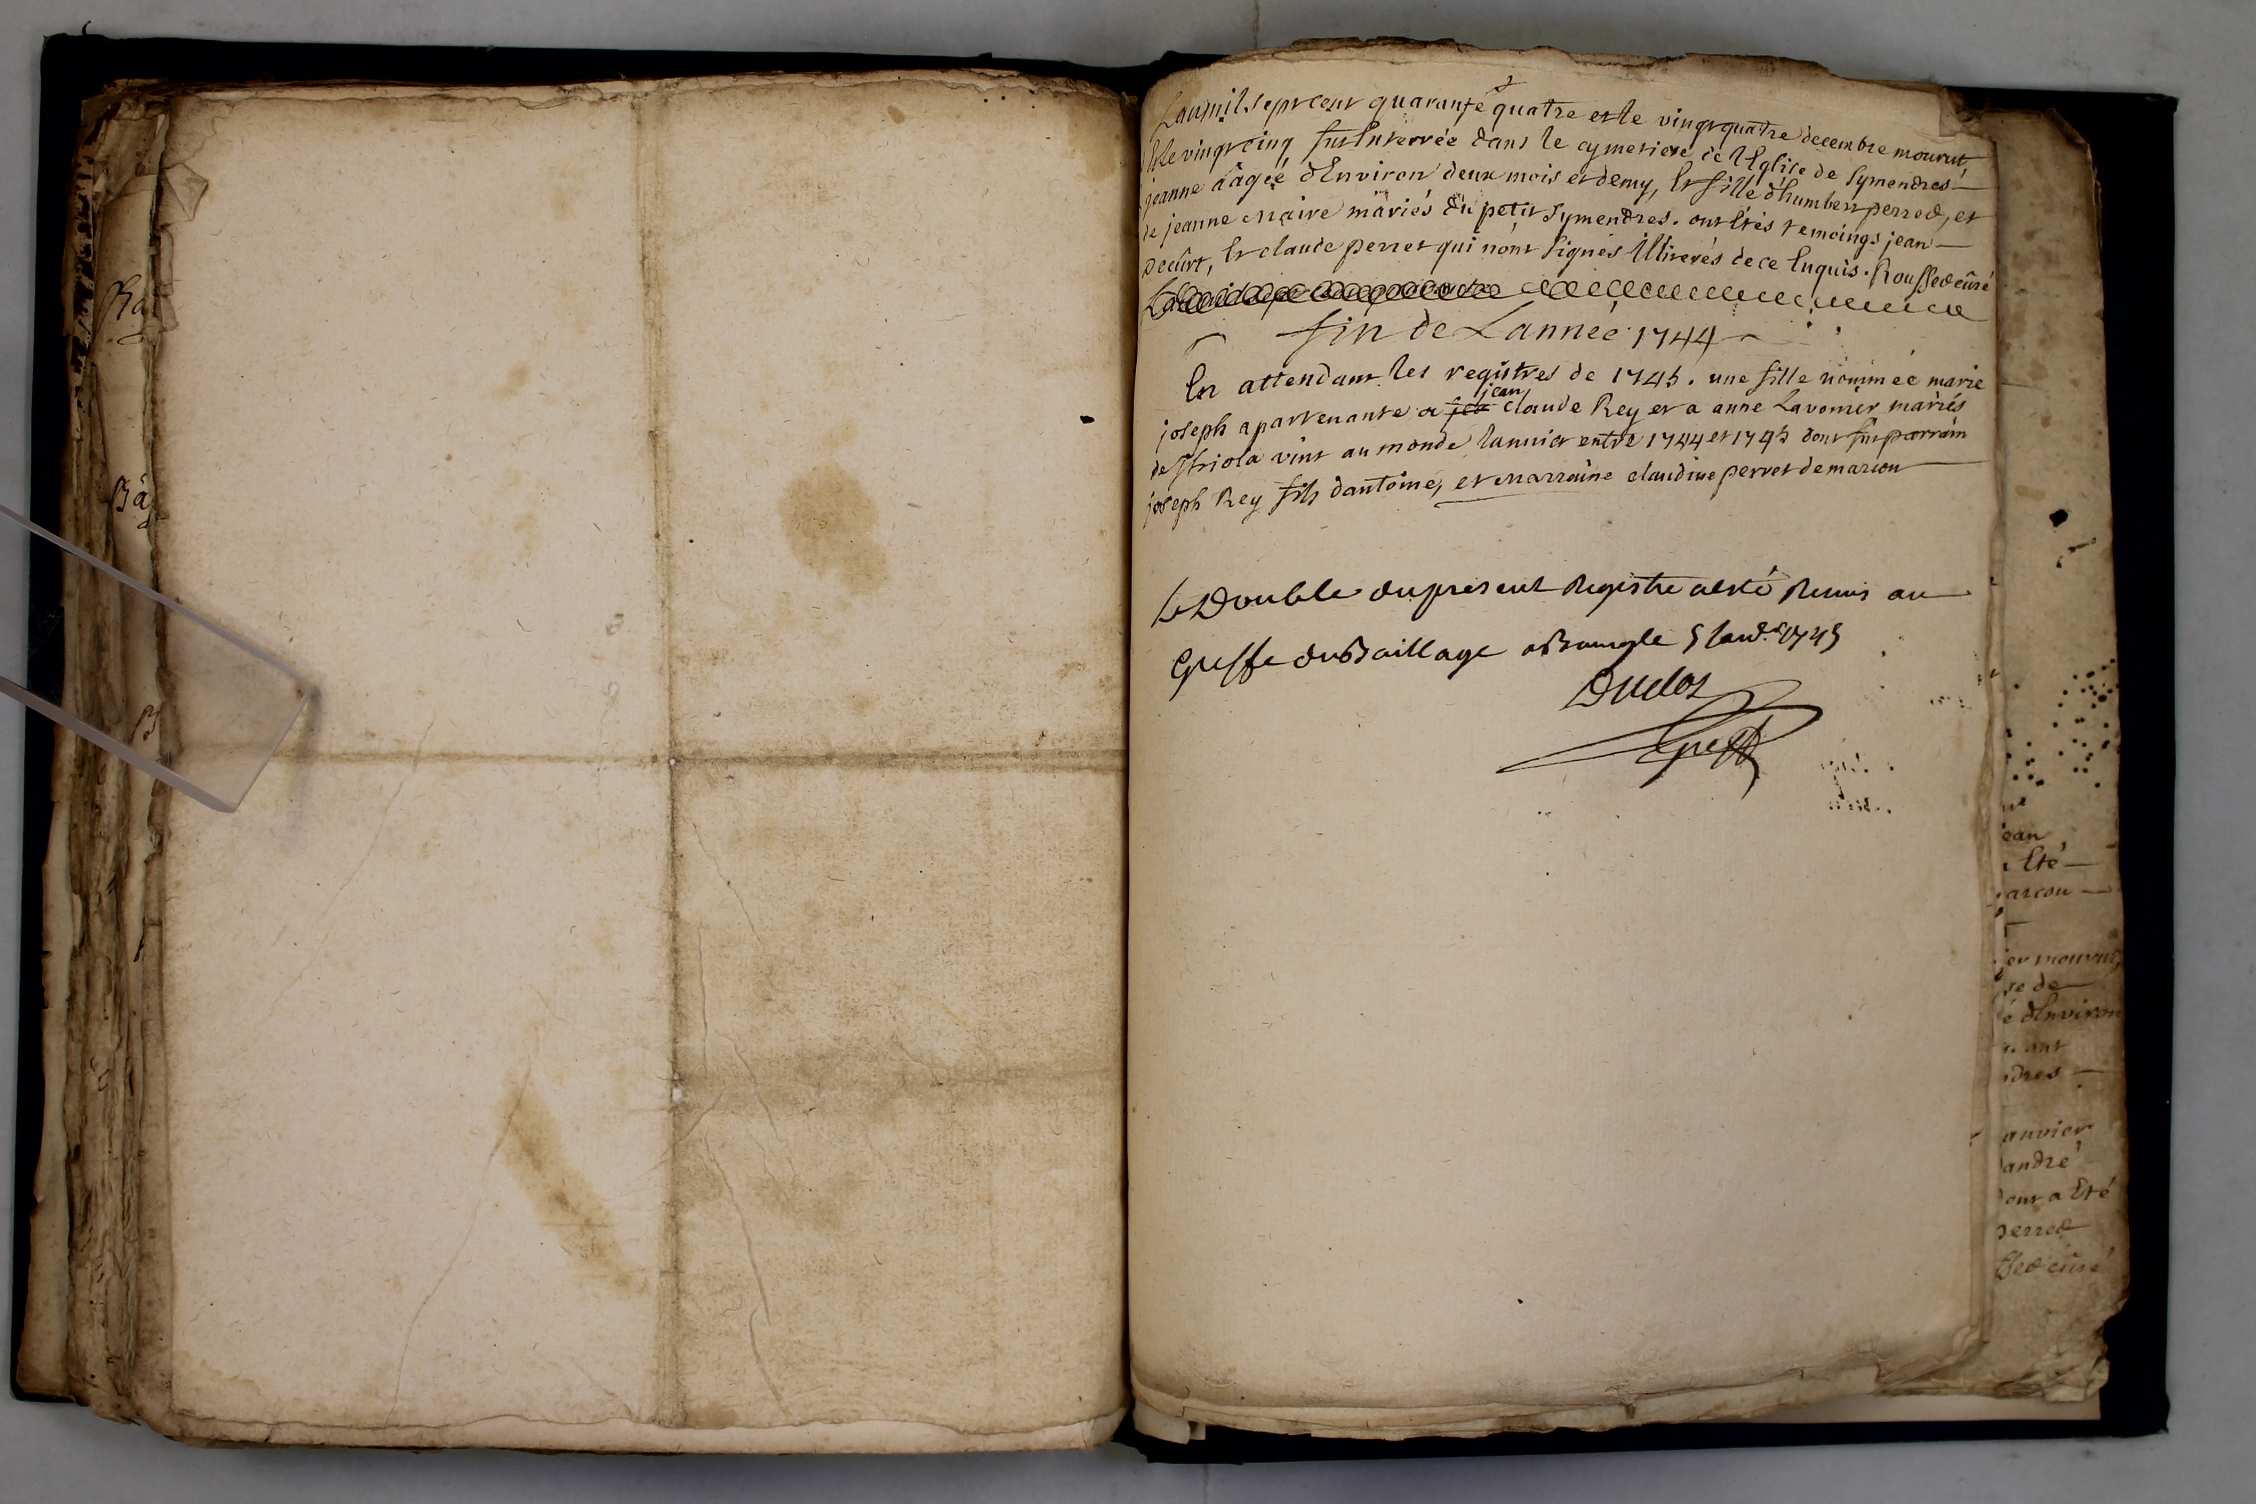 Lan mil sept cent quarante quatre et le vingt quatre decembre mourut
et le vingt cinq fut Enterrée dans le cymetiere de l'Eglise de Symendres
jeanne aâgée dEnviron deux mois et demy, et fille dhumbert perred, et
de jeanne maire mariés du petit Symendres. ont Etés temoings jean
pecûrt, Et claude perret qui nont signés Illiterés de ce Enquis. Roussed cûré
fin de Lannée 1744
En attendant les regîtres de 1745. une fille nommée marie
joseph apartenante a jean claude Rey et a anne Lavenier mariés
de vint au monde Januier entre 1744 et 1745 dont fut parrain
joseph Rey fils dantoine, et marraine claudine perret demarcon
Le Double du present Registre a esté Remis au
Greffe du Baillage 5 Janv. 1745
Duclos
Greff
Ra
Ba
B
ean
Eté
arcon
er mourut
re de
é dEnviron
ont
dres
anvier
andré
ont a Eté
perred
sed cûré